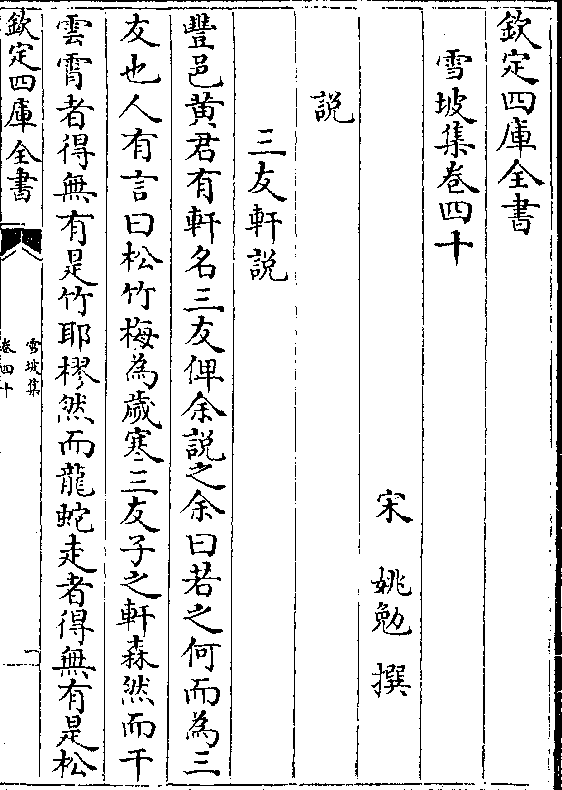 欽定四庫全書
雪坡集卷四十
宋　姚勉　撰
説
三友軒説
豐邑黄君有軒名三友俾余説之余曰若之何而為三
友也人有言曰松竹梅為歲寒三友子之軒森然而干
雲霄者得無有是竹耶樛然而龍蛇走者得無有是松
欽定四庫全書
雪坡集
卷四十
一